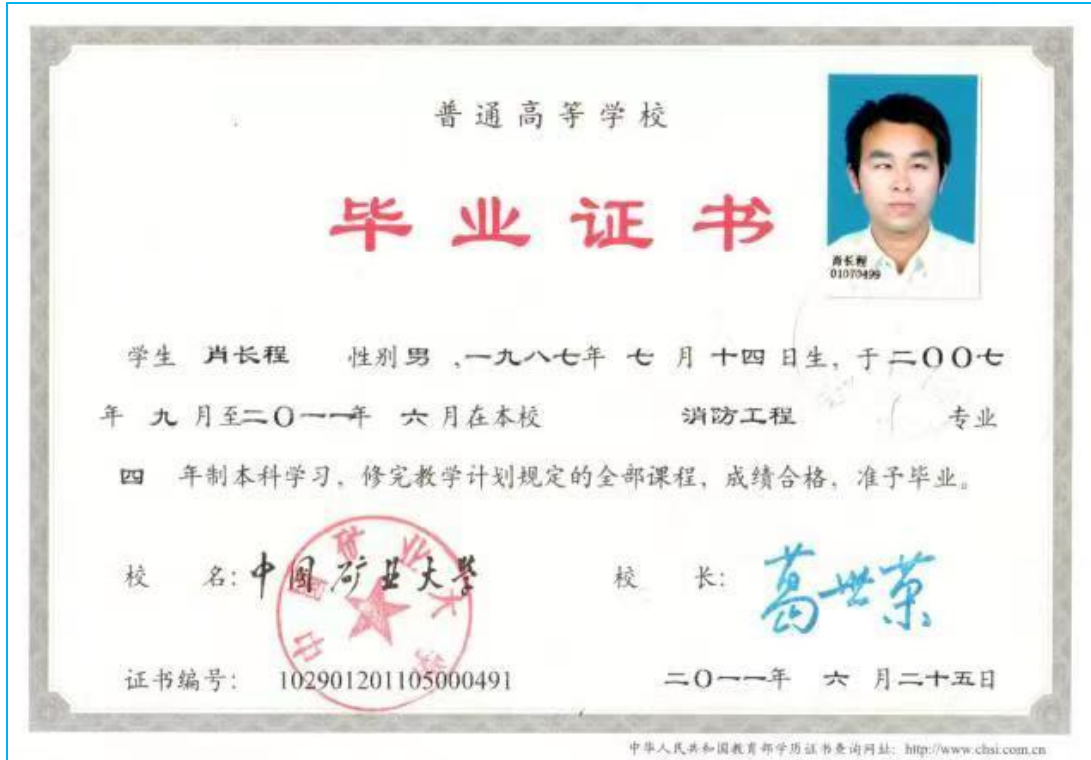 普通高等学校
毕业证书
肖长程
01070499
学生 肖长程 性别 男 ,一九八七年 七 月 十四 日生, 于二〇〇七
年 九 月至二〇一一年 六 月在本校 消防工程 专业
四 年制本科学习, 修完教学计划规定的全部课程, 成绩合格, 准予毕业。
校 名: 中国矿业大学 校 长: 葛世荣
中国矿业大学
证书编号: 102901201105000491 二〇一一年 六 月二十五日
中华人民共和国教育部学历证书查询网址: http://www.chsi.com.cn